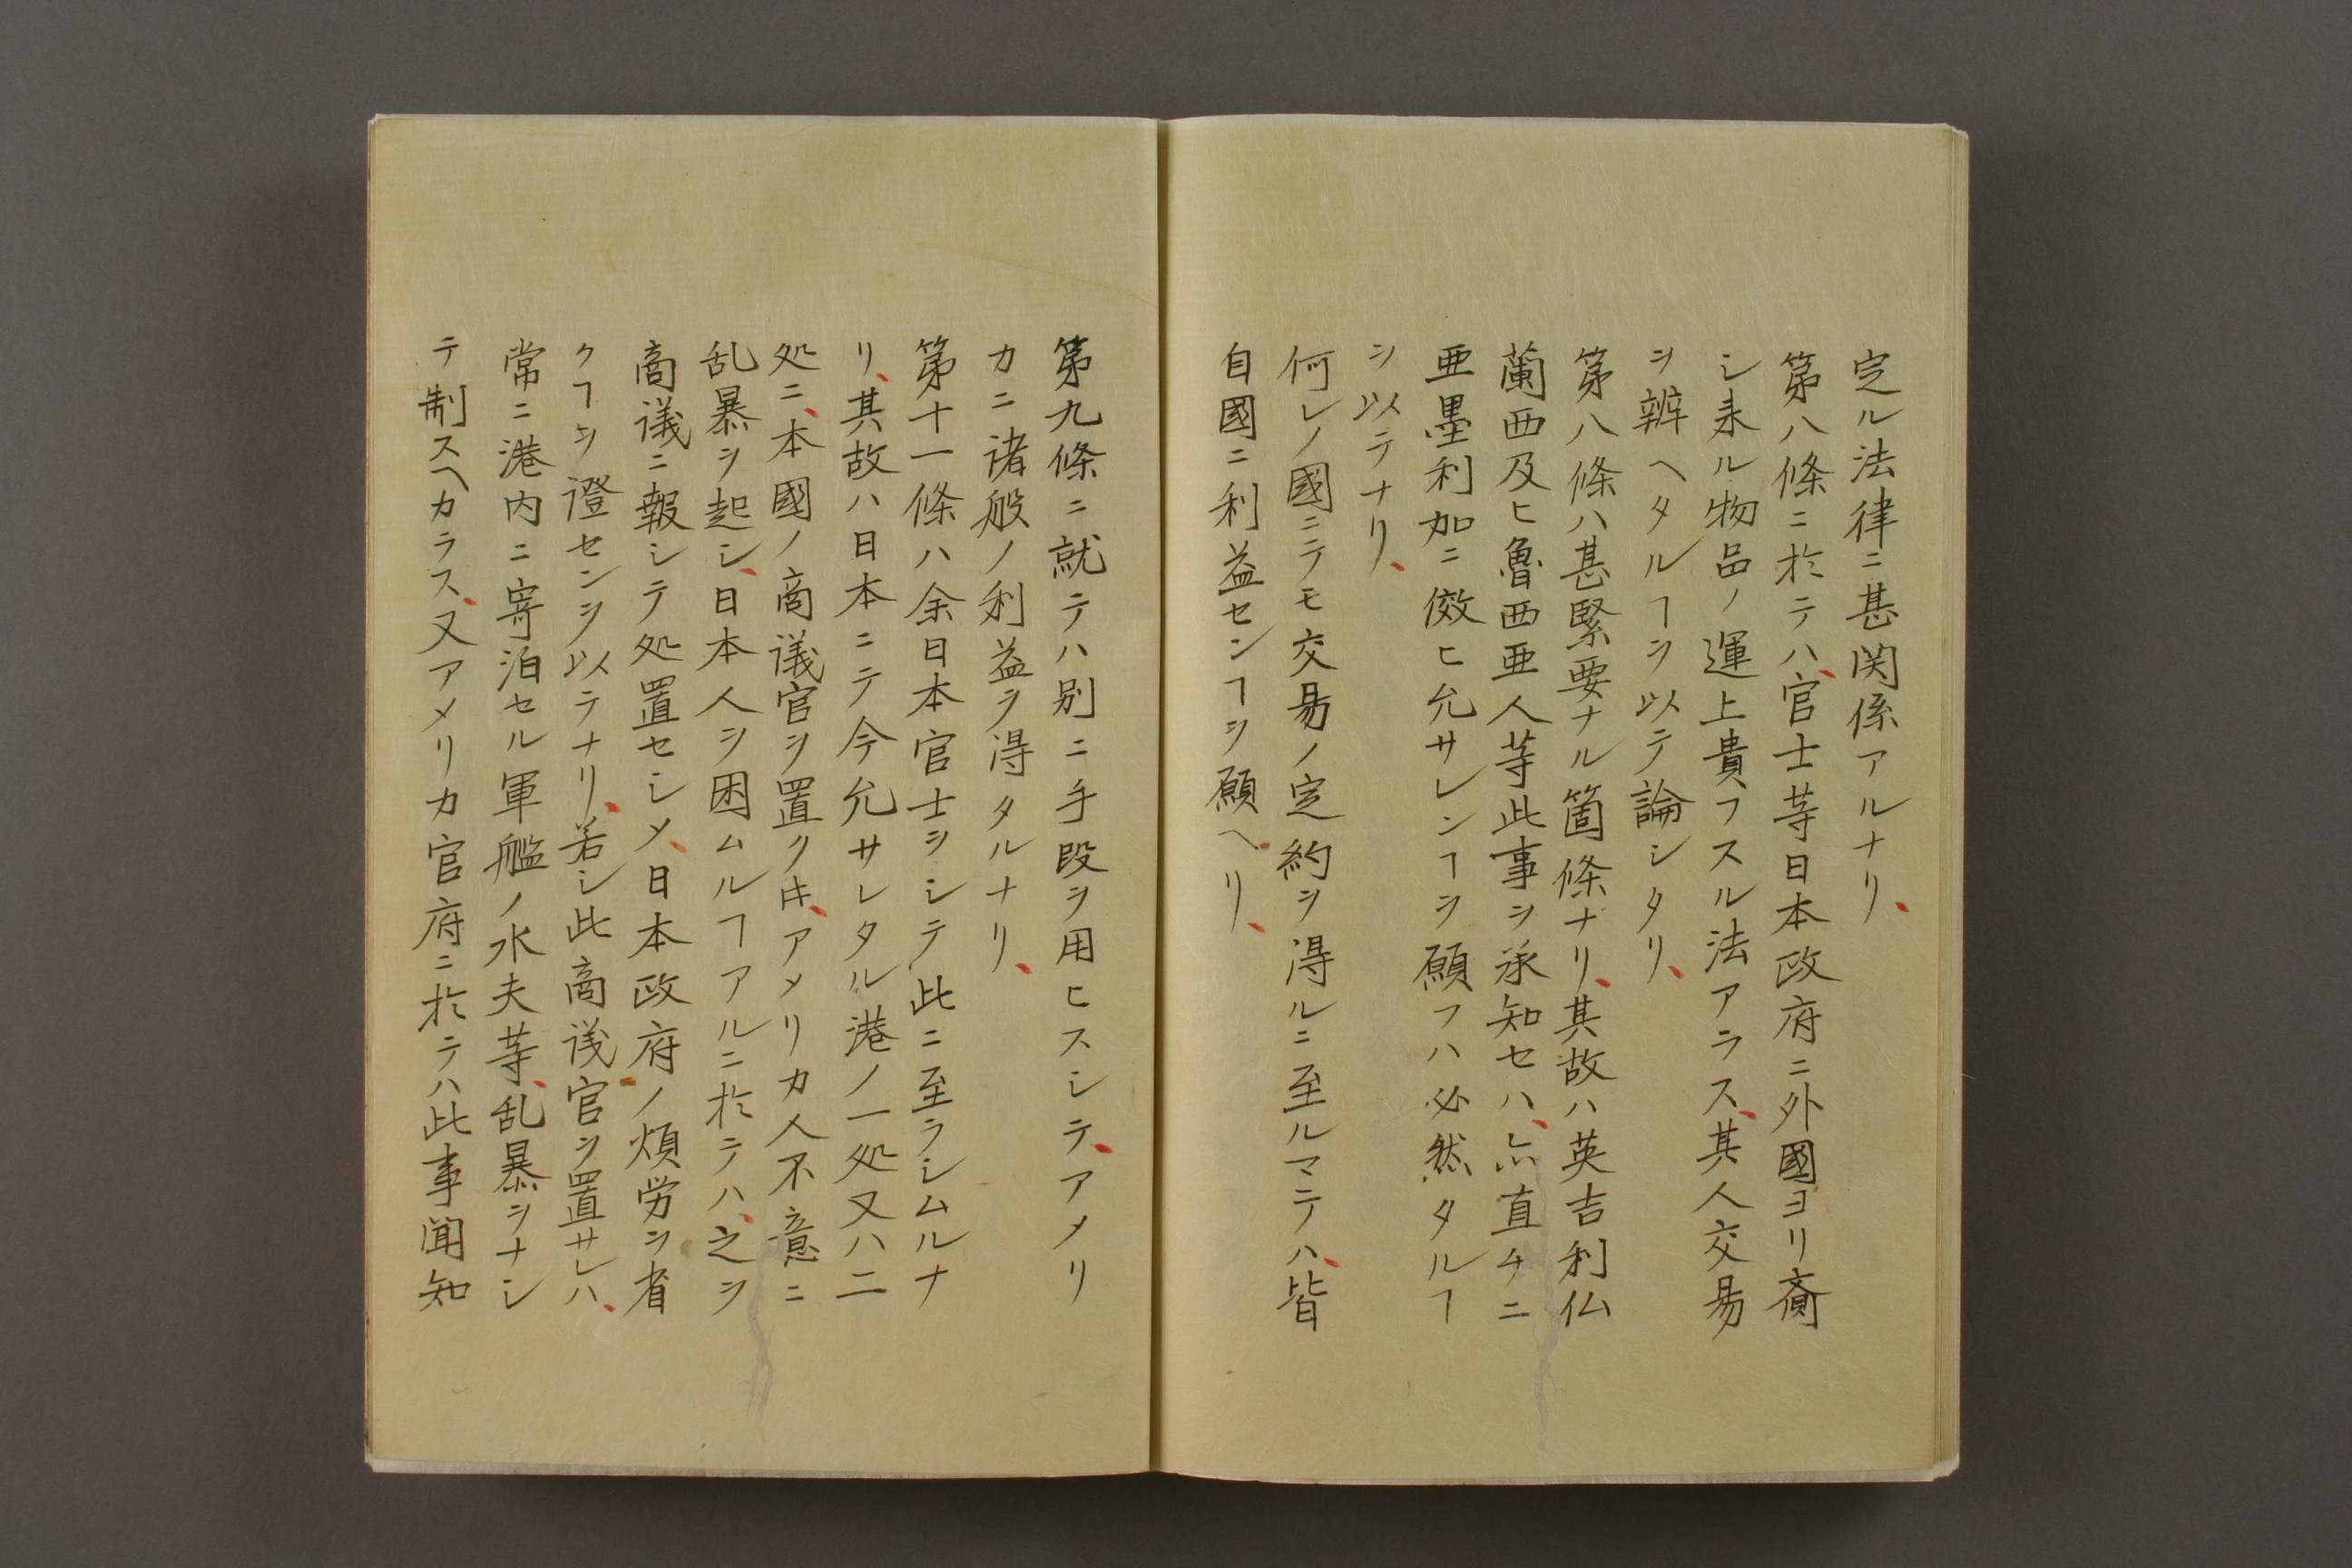 定ル法律ニ甚関係アルナリ、
第八條ニ於テハ、官士等日本政府ニ外國ヨリ齎
シ来ル物品ノ運上貴フスル法アラス、其人交易
ヲ辨ヘタルヿヲ以テ論シタリ、
第八條ハ甚緊要ナル箇條ナリ、其故ハ英吉利仏
蘭西及ヒ魯西亜人等此事ヲ承知セハ、亦直チニ
亜墨利加ニ傚ヒ允サレンヿヲ願フハ必然タルヿ
ヲ以テナリ、
何レノ國ニテモ交易ノ定約ヲ得ルニ至ルマテハ、皆
自國ニ利益センヿヲ願ヘリ、
第九條ニ就テハ別ニ手段ヲ用ヒスシテ、アメリ
カニ諸般ノ利益ヲ得タルナリ、
第十一條ハ余日本官士ヲシテ此ニ至ラシムルナ
リ、其故ハ日本ニテ今允サレタル港ノ一処又ハ二
処ニ、本國ノ商議官ヲ置クキ、アメリカ人不意ニ
乱暴ヲ起シ、日本人ヲ困ムルヿアルニ於テハ、之ヲ
商議ニ報シテ処置セシメ、日本政府ノ煩労ヲ省
クヿヲ證センヲ以テナリ、若シ此商議官ヲ置サレハ、
常ニ港内ニ寄泊セル軍艦ノ水夫等、乱暴ヲナシ
テ制スヘカラス、又アメリカ官府ニ於テハ此事聞知